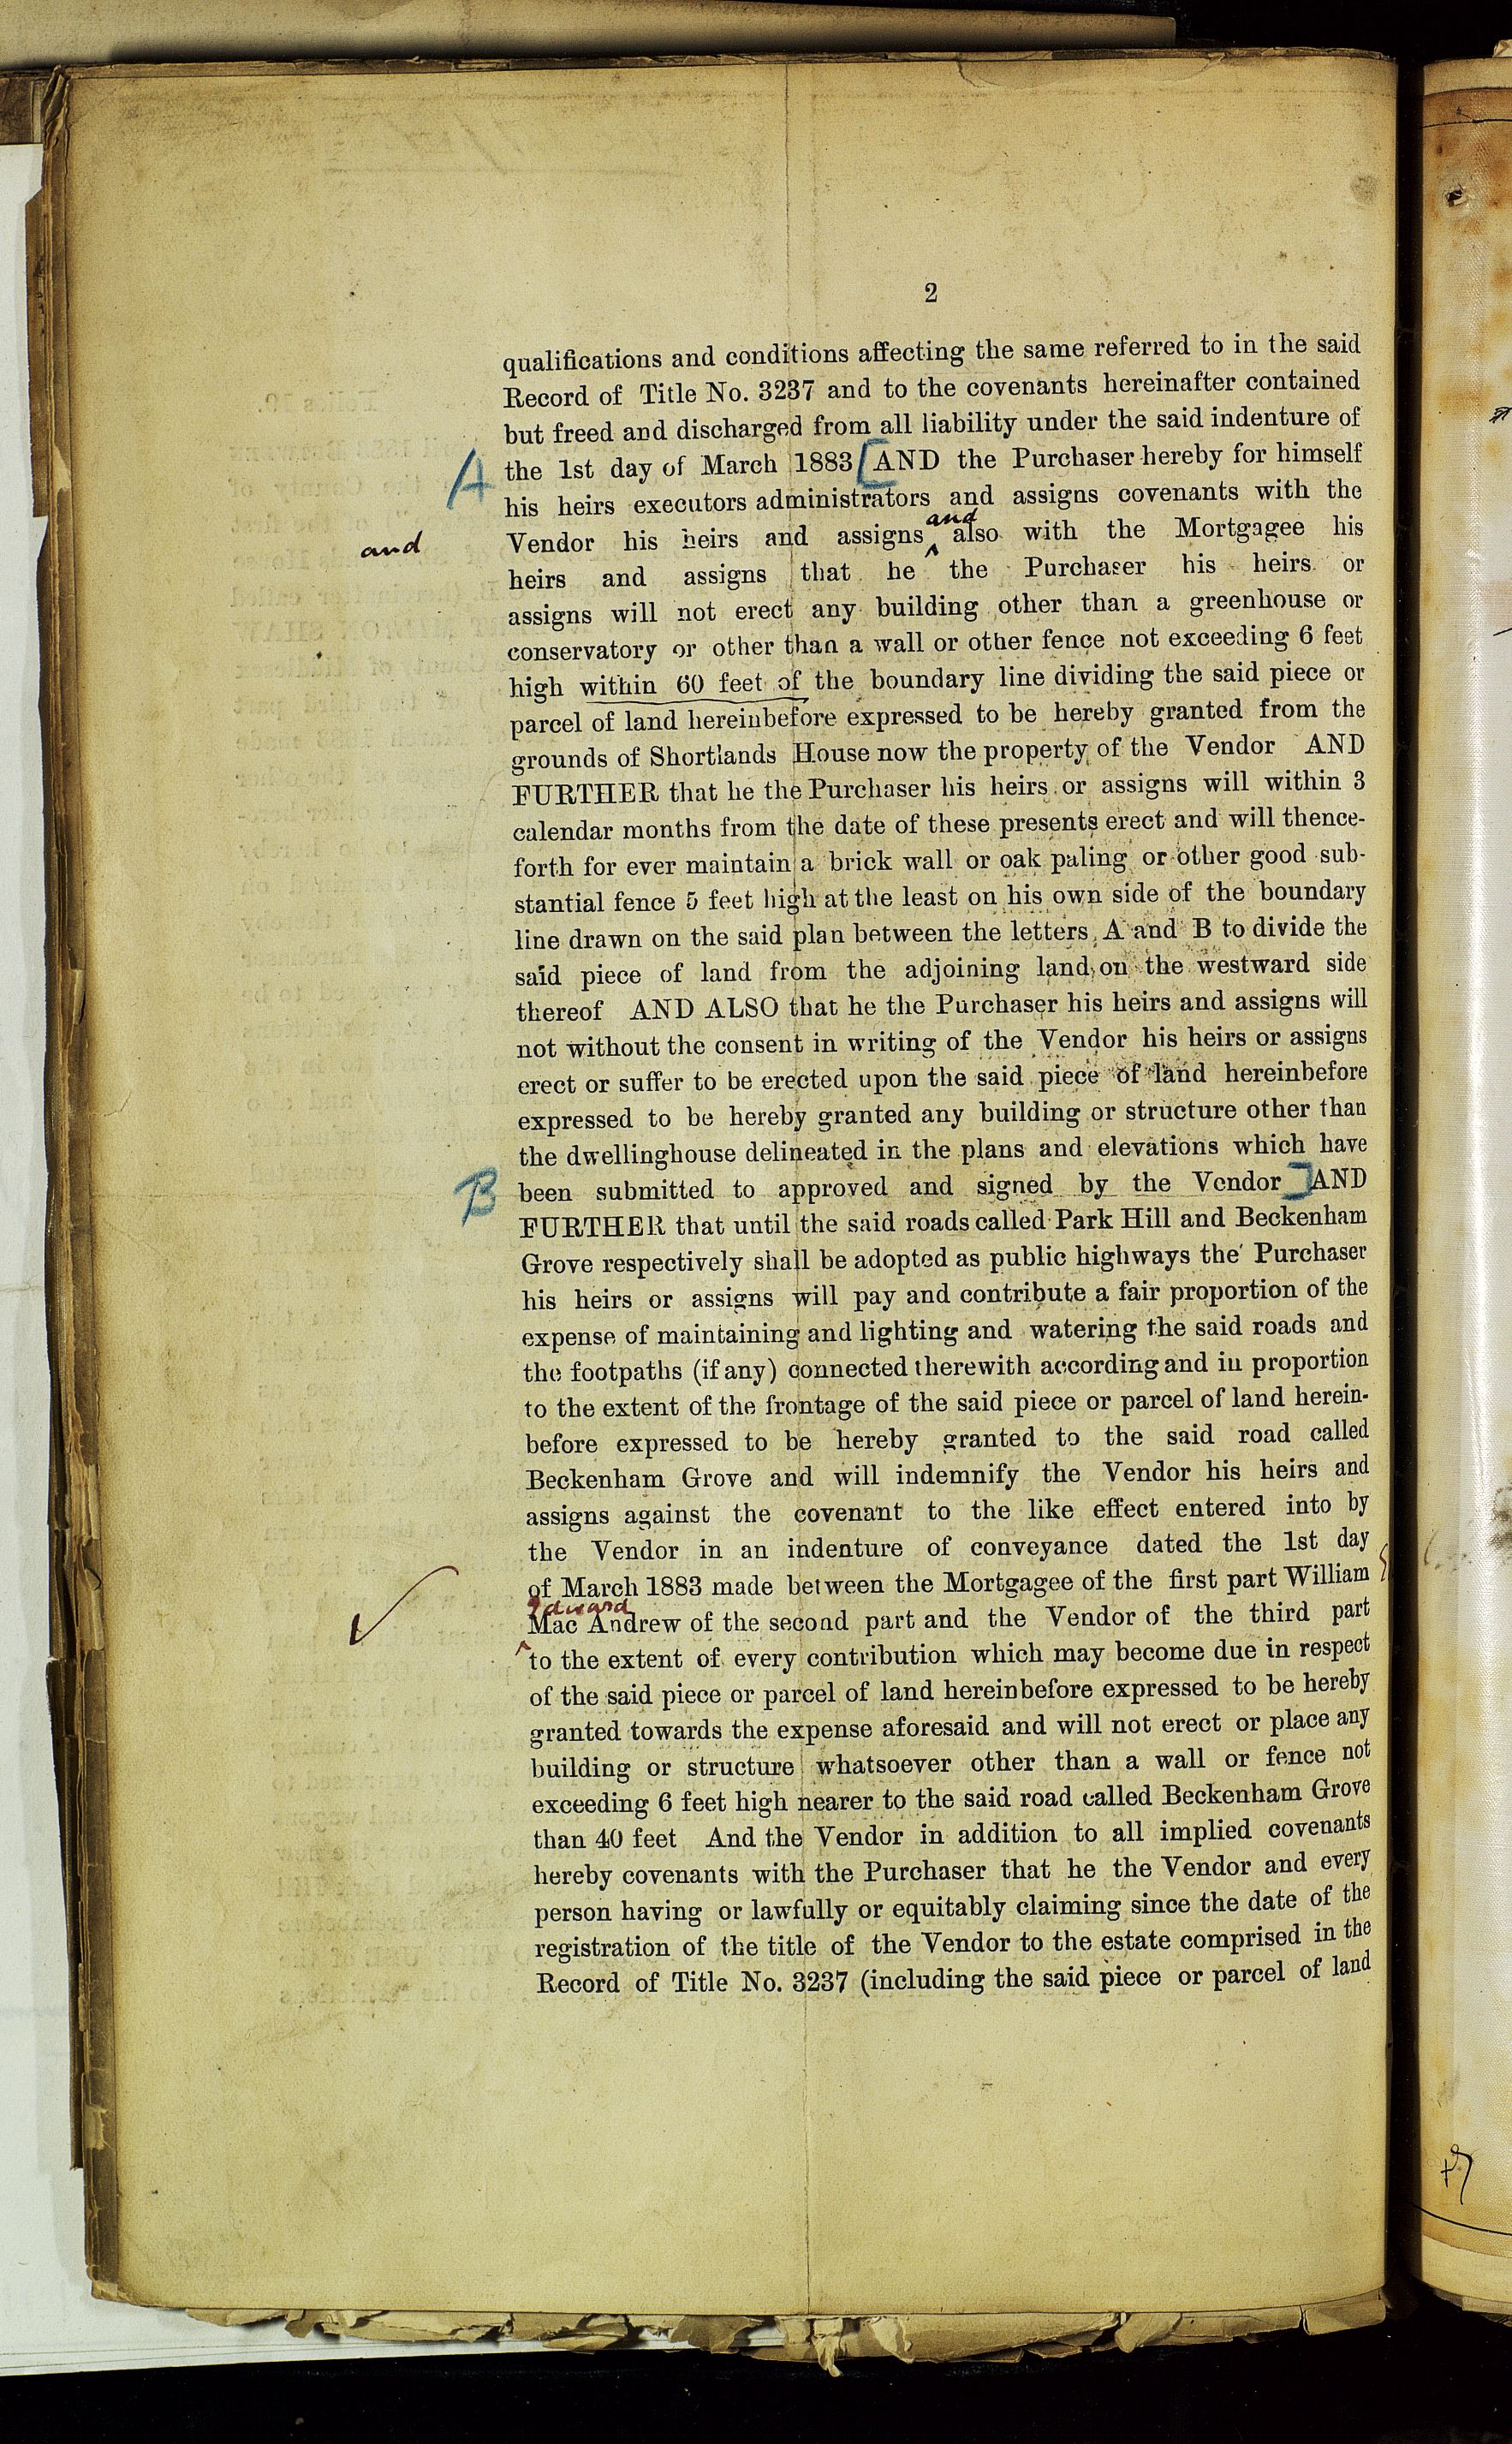 2
qualifications and conditions affecting the same referred to in the said
Record of Title No. 3237 and to the covenants hereinafter contained
but freed and discharged from all liability under the said indenture of
A the 1st day of March 1883 [AND the Purchaser hereby for himself
his heirs executors administrators and assigns covenants with the
and
and Vendor his heirs and assigns ‸ also with the Mortgagee his
heirs and assigns that he the Purchaser his heirs or
assigns will not erect any building other than a greenhouse or
conservatory or other than a wall or other fence not exceeding 6 feet
high within 60 feet of the boundary line dividing the said piece or
parcel of land hereinbefore expressed to be hereby granted from the
grounds of Shortlands House now the property of the Vendor AND
FURTHER that he the Purchaser his heirs or assigns will within 3
calendar months from the date of these presents erect and will thence-
forth for ever maintain a brick wall or oak paling or other good sub-
stantial fence 5 feet high at the least on his own side of the boundary
line drawn on the said plan between the letters A and B to divide the
said piece of land from the adjoining land on the westward side
thereof AND ALSO that he the Purchaser his heirs and assigns will
not without the consent in writing of the Vendor his heirs or assigns
erect or suffer to be erected upon the said piece of land hereinbefore
expressed to be hereby granted any building or structure other than
the dwellinghouse delineated in the plans and elevations which have
B been submitted to approved and signed by the Vendor] AND
FURTHER that until the said roads called Park Hill and Beckenham
Grove respectively shall be adopted as public highways the Purchaser
his heirs or assigns will pay and contribute a fair proportion of the
expense of maintaining and lighting and watering the said roads and
the footpaths (if any) connected therewith according and in proportion
to the extent of the frontage of the said piece or parcel of land herein-
before expressed to be hereby granted to the said road called
Beckenham Grove and will indemnify the Vendor his heirs and
assigns against the covenant to the like effect entered into by
the Vendor in an indenture of conveyance dated the 1st day
of March 1883 made between the Mortgagee of the first part William
Edward
Mac Andrew of the second part and the Vendor of the third part
to the extent of every contribution which may become due in respect
of the said piece or parcel of land hereinbefore expressed to be hereby
granted towards the expense aforesaid and will not erect or place any
building or structure whatsoever other than a wall or fence not
exceeding 6 feet high nearer to the said road called Beckenham Grove
than 40 feet And the Vendor in addition to all implied covenants
hereby covenants with the Purchaser that he the Vendor and every
person having or lawfully or equitably claiming since the date of the
registration of the title of the Vendor to the estate comprised in the
Record of Title No. 3237 (including the said piece or parcel of land